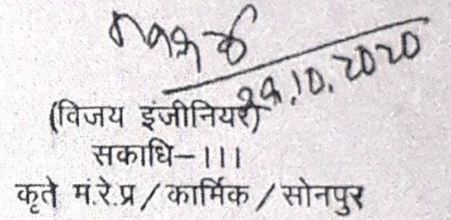 29.10.2020
(विजय इंजीनियर)
सकाधि-।।।
कृते मं.रे.प्र/कार्मिक/सोनपुर